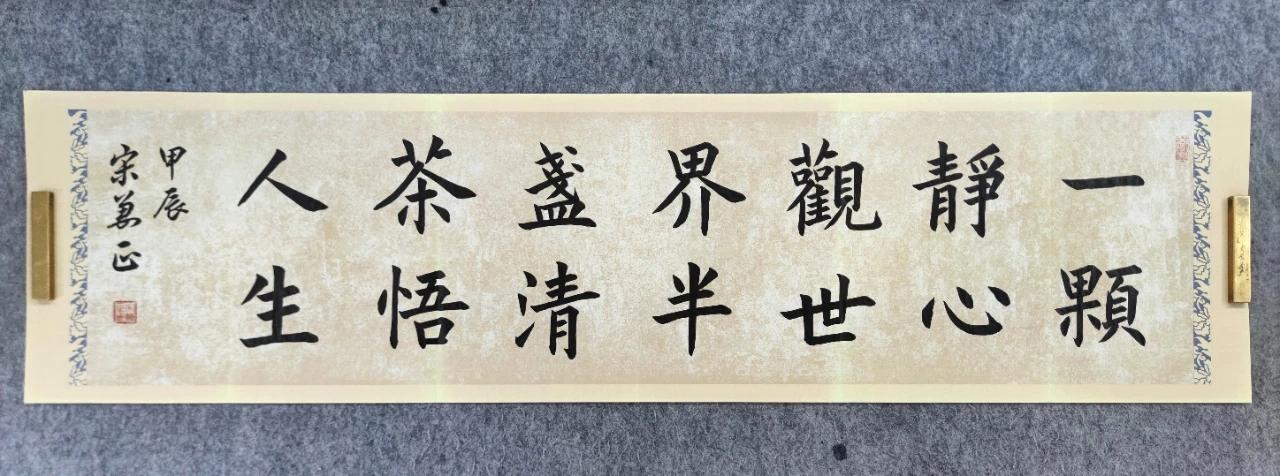 一顆
靜心
觀世
界半
盞清
茶悟
人生
甲辰
宋益正